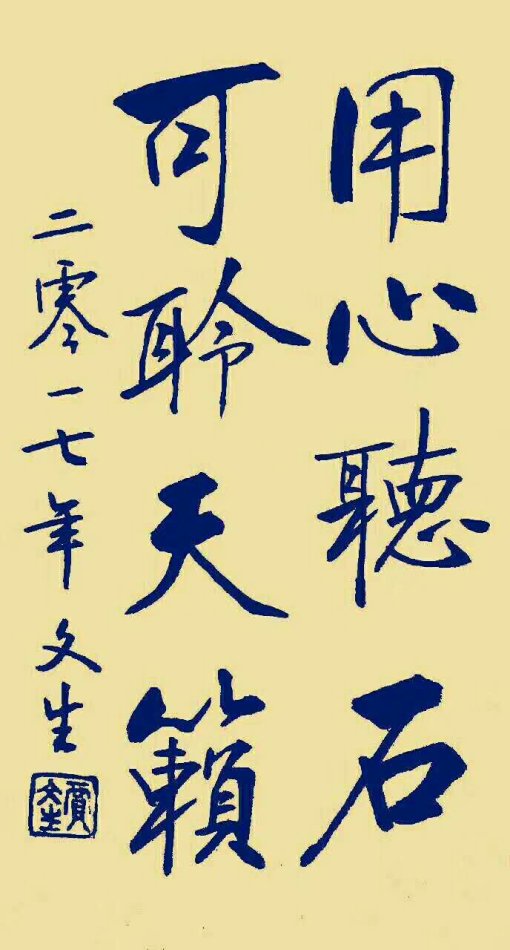 用心聽石
可聆天籟
二零一七年文生
賈文生